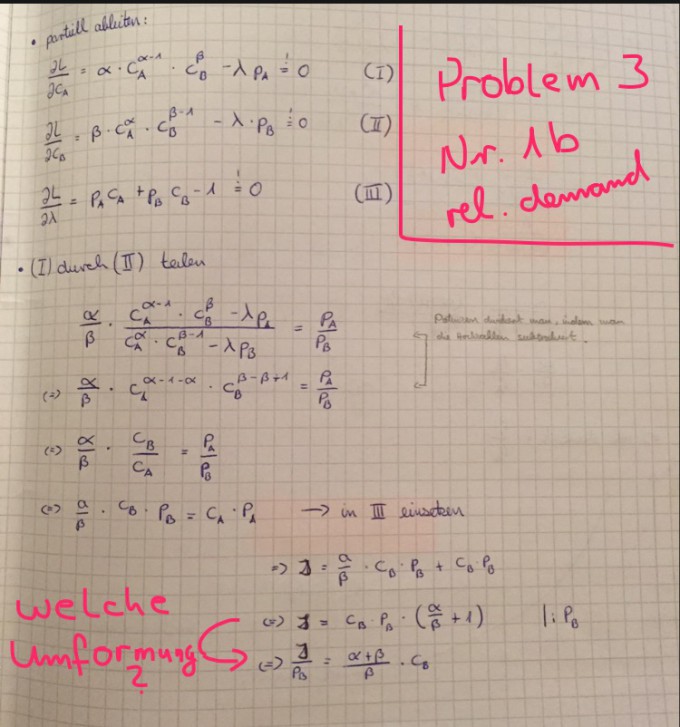 • partiell ableiten:
∂L/∂C_A = α · C_A^(α-1) · C_B^β - λ P_A =! 0 (I)
∂L/∂C_B = β · C_A^α · C_B^(β-1) - λ · P_B =! 0 (II)
∂L/∂λ = P_A C_A + P_B C_B - 1 =! 0 (III)
Problem 3
Nr. 1b
rel. demand
• (I) durch (II) teilen
α/β · (C_A^(α-1) · C_B^β - λ P_A)/(C_A^α · C_B^(β-1) - λ P_B) = P_A/P_B
Potenzen dividiert man, indem man
die
(=) α/β · C_A^(α-1-α) · C_B^(β-β+1) = P_A/P_B
(=) α/β · C_B/C_A = P_A/P_B
(=) α/β · C_B · P_B = C_A · P_A → in III einsetzen
=> I = α/β · C_B · P_B + C_B · P_B
(=) I = C_B · P_B · (α/β + 1) |: P_B
(=) I/P_B = (α+β)/β · C_B
welche
Umformung
?